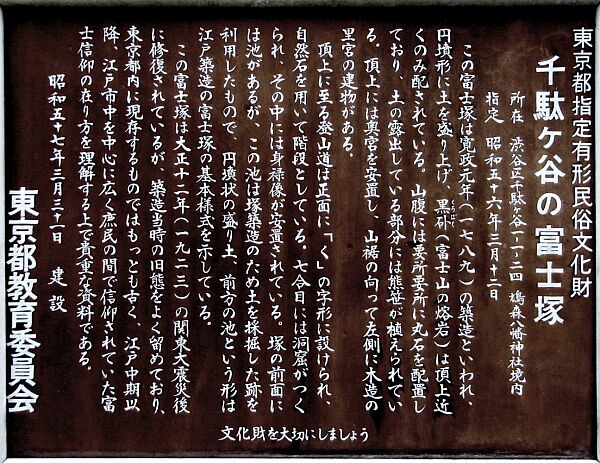 東京都指定有形民俗文化財
千駄ヶ谷の富士塚
所在 渋谷区千駄ヶ谷一-一-二四 鳩森八幡神社境内
指定 昭和五十六年三月十二日
この富士塚は寛政元年(一七八九)の築造といわれ、
円墳形に土を盛り上げ、黒ボク(富士山の熔岩)は頂上近
くのみ配されている。山腹には要所要所に丸石を配置し
ており、土の露出している部分には熊笹が植えられてい
る。頂上には奥宮を安置し、山裾の向って左側に木造の
里宮の建物がある。
頂上に至る登山道は正面に「く」の字形に設けられ、
自然石を用いて階段としている。七合目には洞窟がつく
られ、その中には身禄像が安置されている。塚の前面に
は池があるが、この池は塚築造のため土を採掘した跡を
利用したもので、円墳状の盛り土、前方の池という形は
江戸築造の富士塚の基本様式を示している。
この富士塚は大正十二年(一九二三)の関東大震災後
に修復されているが、築造当時の旧態をよく留めており、
東京都内に現存するものではもっとも古く、江戸中期以
降、江戸市中を中心に広く庶民の間で信仰されていた富
士信仰の在り方を理解する上で貴重な資料である。
昭和五十七年三月三十一日 建設
東京都教育委員会
文化財を大切にしましょう